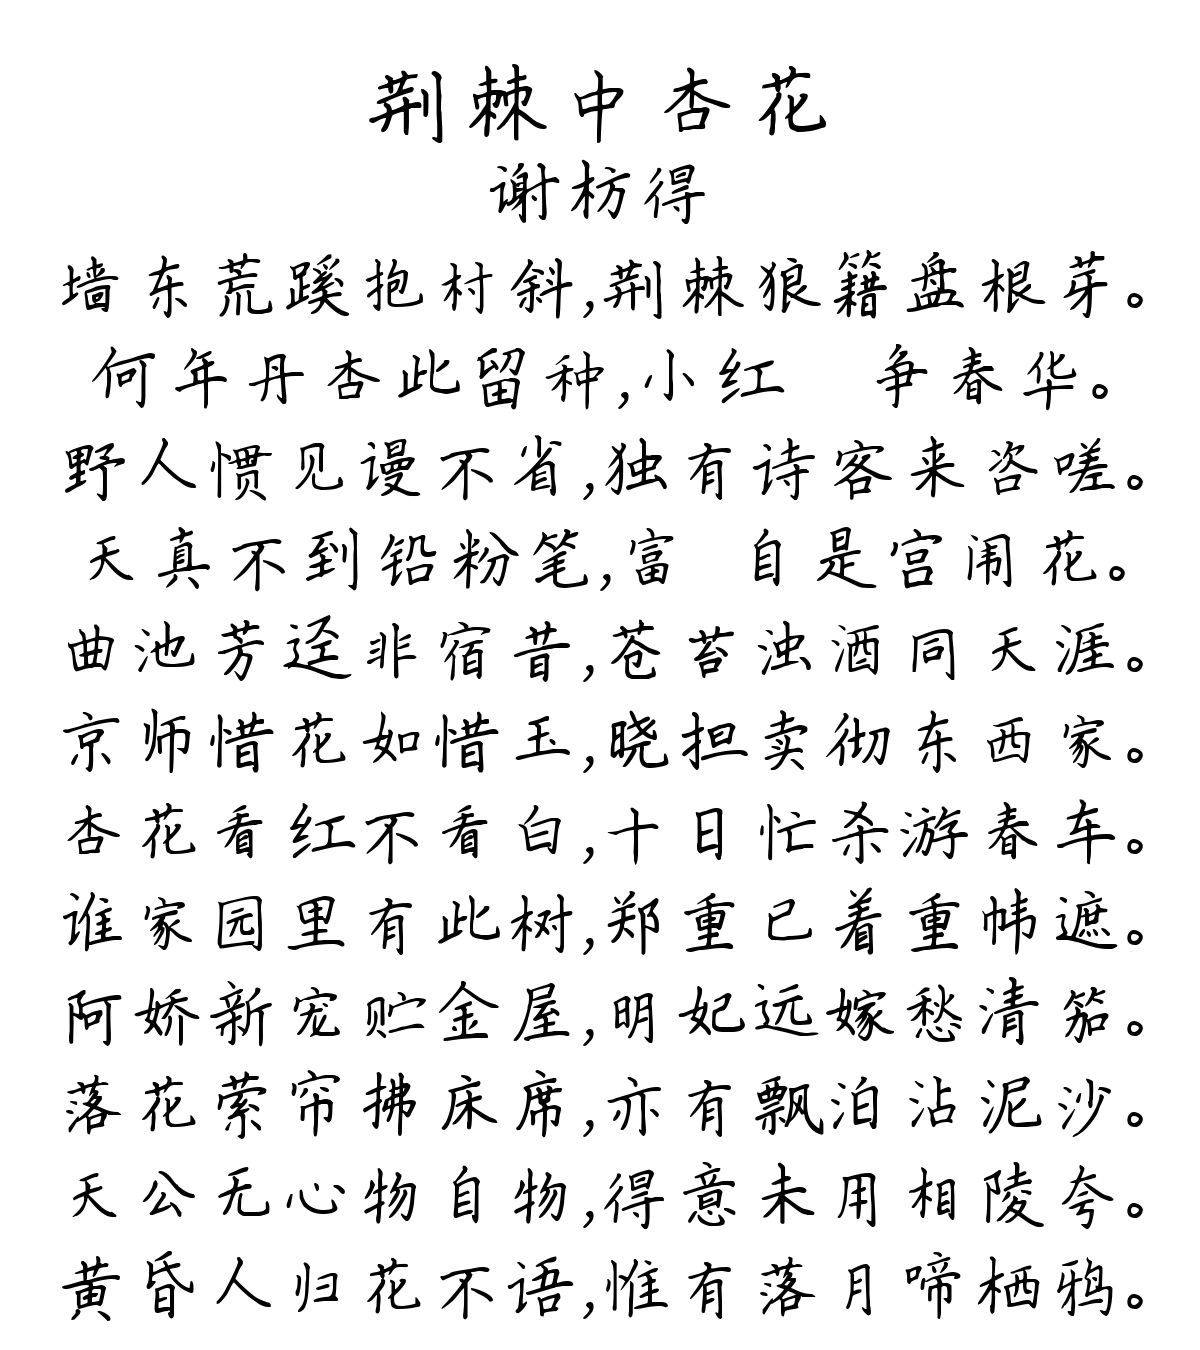 荆棘中杏花
谢枋得
墙东荒蹊抱村斜,荆棘狼籍盘根芽。
何年丹杏此留种,小红 争春华。
野人惯见谩不省,独有诗客来咨嗟。
天真不到铅粉笔,富 自是宫闱花。
曲池芳迳非宿昔,苍苔浊酒同天涯。
京师惜花如惜玉,晓担卖彻东西家。
杏花看红不看白,十日忙杀游春车。
谁家园里有此树,郑重已着重帏遮。
阿娇新宠贮金屋,明妃远嫁愁清笳。
落花萦帘拂床席,亦有飘泊沾泥沙。
天公无心物自物,得意未用相陵夸。
黄昏人归花不语,惟有落月啼栖鸦。